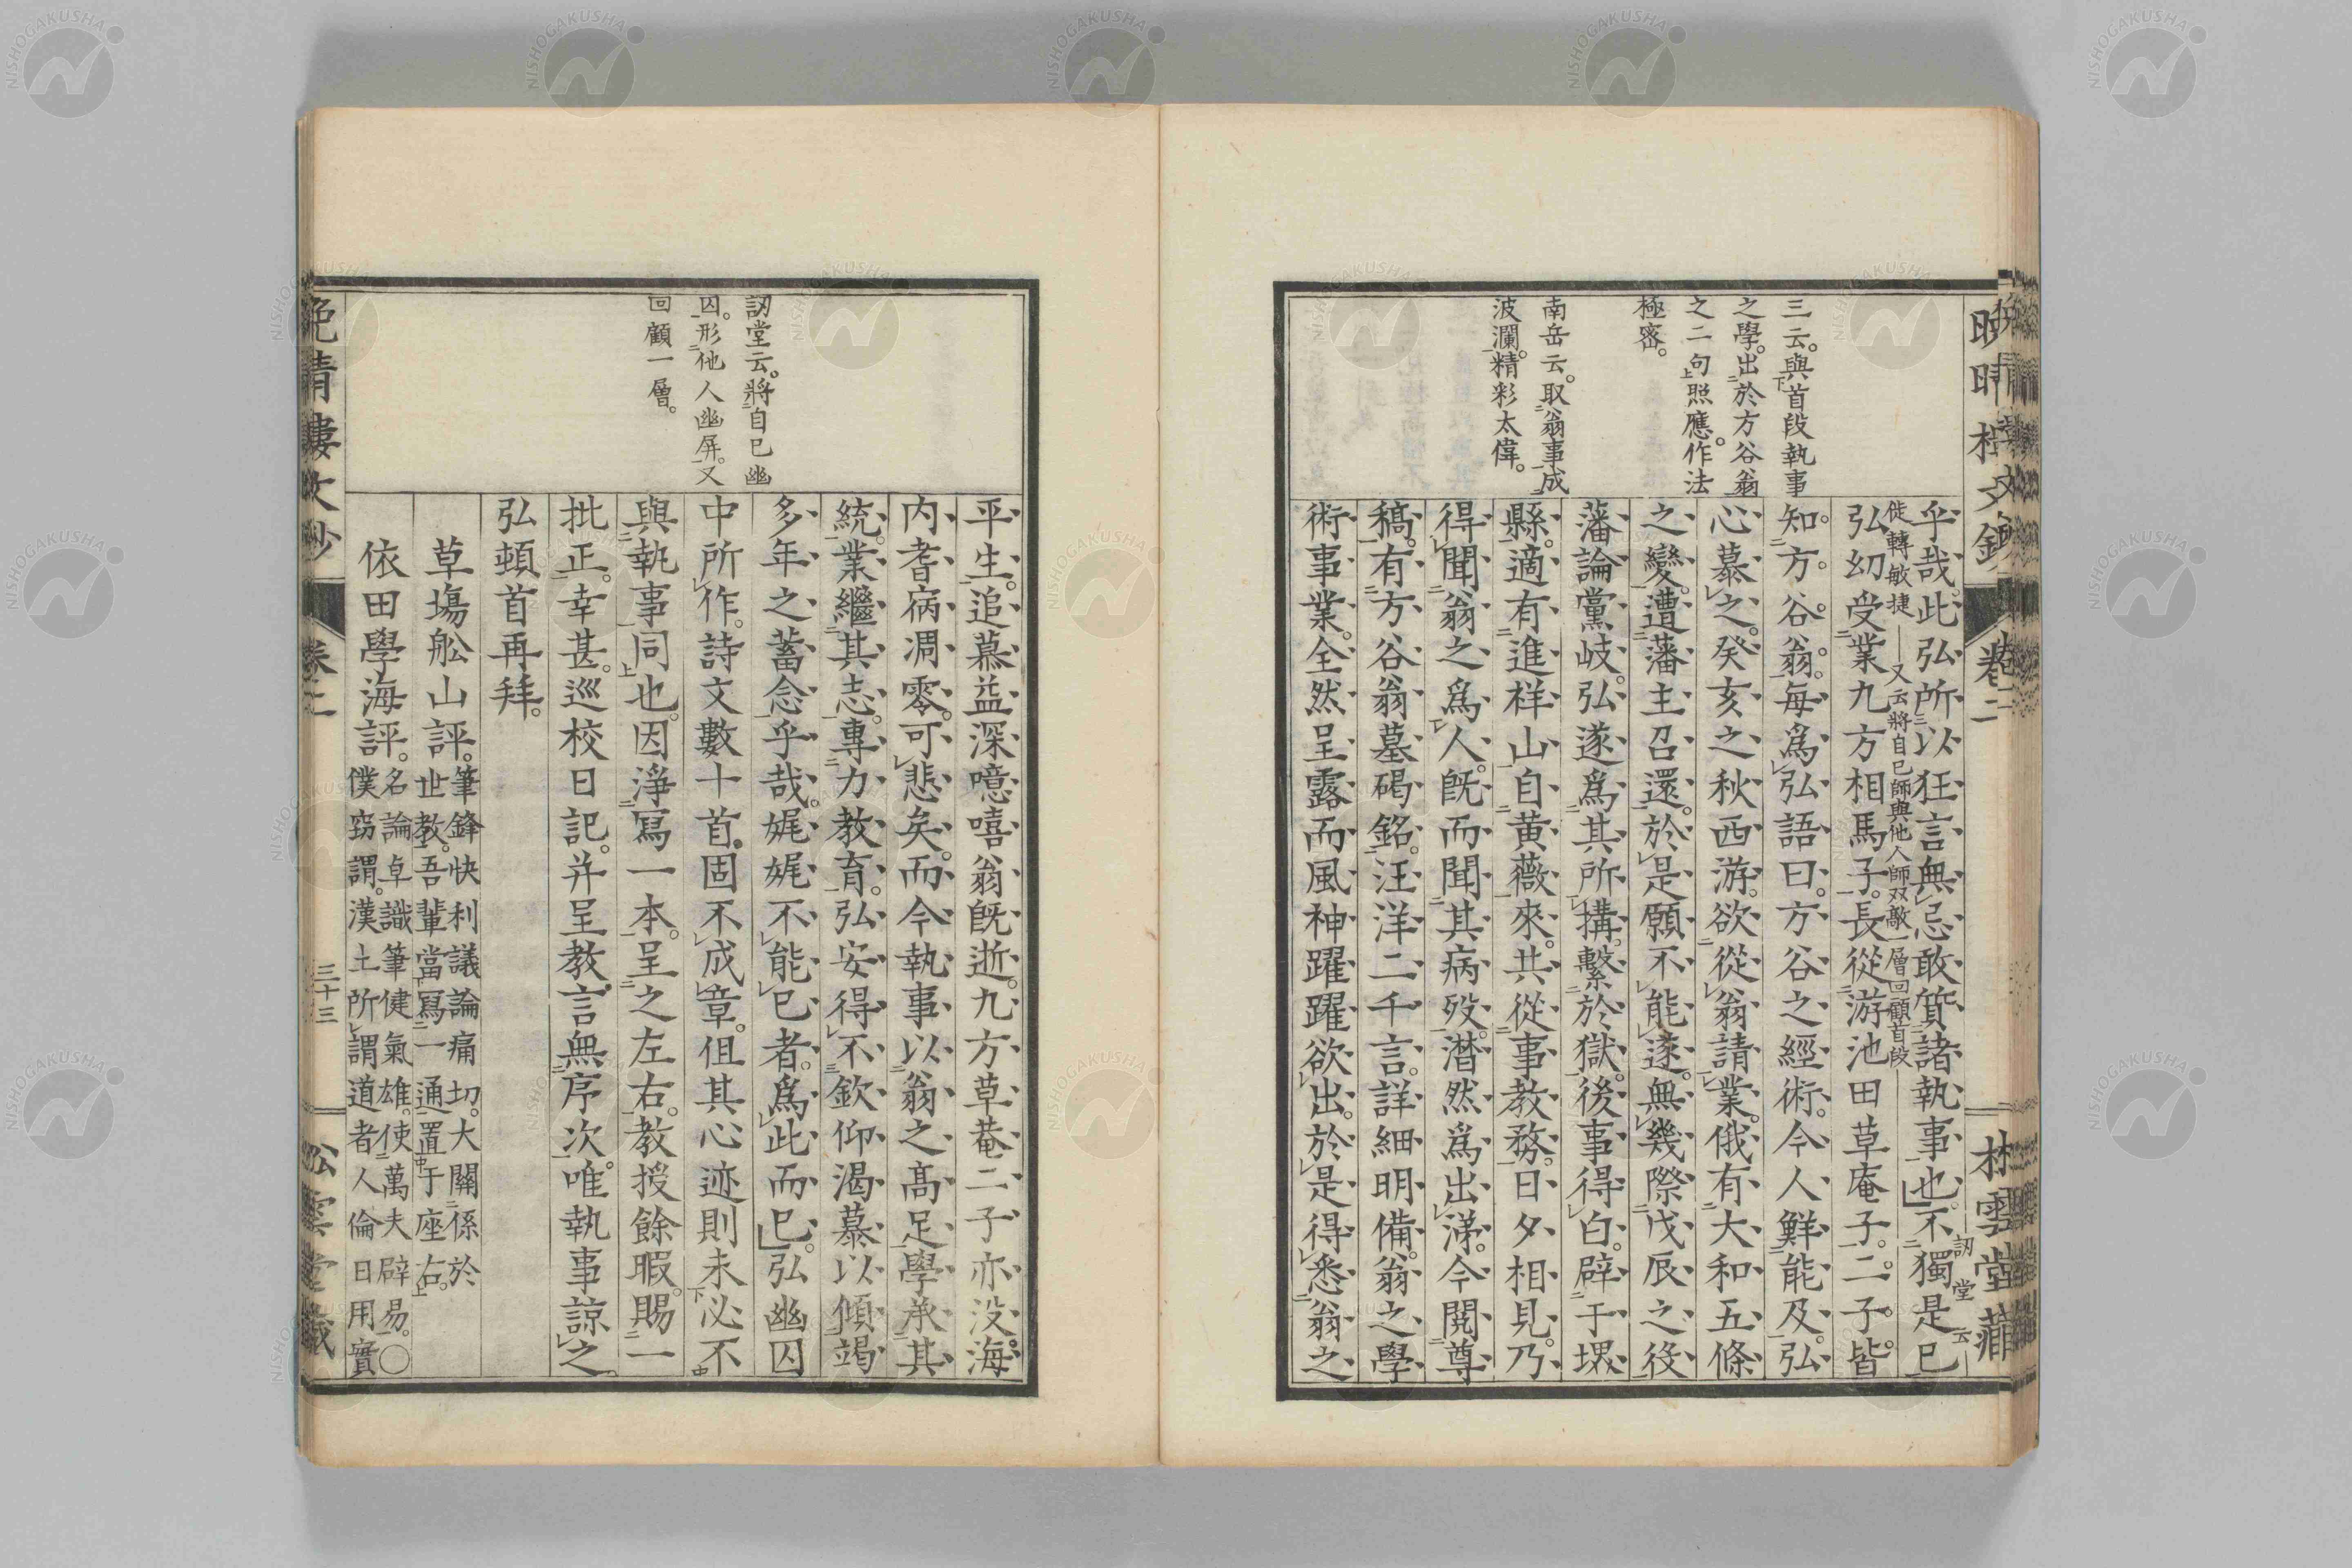 三云。與首段執事
之學。出於方谷翁
之二句照應。作法
極密。
南岳云。取翁事成
波瀾。精彩太偉。
乎哉。此弘所以狂言無忌敢質諸執事也。不獨是已
訒堂云
徙轉敏捷——又云將自己師與他人師双敵一層回顧首段
弘幼受業九方相馬子。長從游池田草庵子。二子皆
知方谷翁。每爲弘語曰。方谷之經術。今人鮮能及。弘
心慕之。癸亥之秋西游。欲從翁請業。俄有大和五條
之變。遭藩主召還。於是願不能遂。無幾際戊辰之役
藩論黨岐。弘遂爲其所搆。繫於獄。後事得白。辟于堺
縣。適有進祥山自黃薇來。共從事教務。日夕相見。乃
得聞翁之爲人。旣而聞其病歿。潸然爲出涕。今閱尊
稿。有方谷翁墓碣銘。汪洋二千言。詳細明備。翁之學
術事業。全然呈露而風神躍躍欲出。於是得悉翁之
訒堂云。將自己幽
囚。形他人幽屏。又
回顧一層。
平生。追慕益深。噫嘻翁旣逝。九方草菴二子亦没。海
内耆病凋零。可悲矣。而今執事以翁之高足。學承其
統。業繼其志。專力教育。弘安得不欽仰渴慕以傾竭
多年之蓄念乎哉。娓娓不能已者。爲此而已。弘幽囚
中所作。詩文數十首。固不成章。但其心迹則未必不
與執事同也。因淨寫一本。呈之左右。教授餘暇。賜一
批正。幸甚。巡校日記。并呈教。言無序次。唯執事諒之
弘頓首再拜。
草場船山評。筆鋒快利議論痛切。大關係於
世教。吾輩當寫一通置于座右。
依田學海評。名論卓識筆健氣雄。使萬夫辟易。〇
僕竊謂。漢土所謂道者人倫日用實
晩晴樓文鈔 卷二 三十三 松雲堂藏